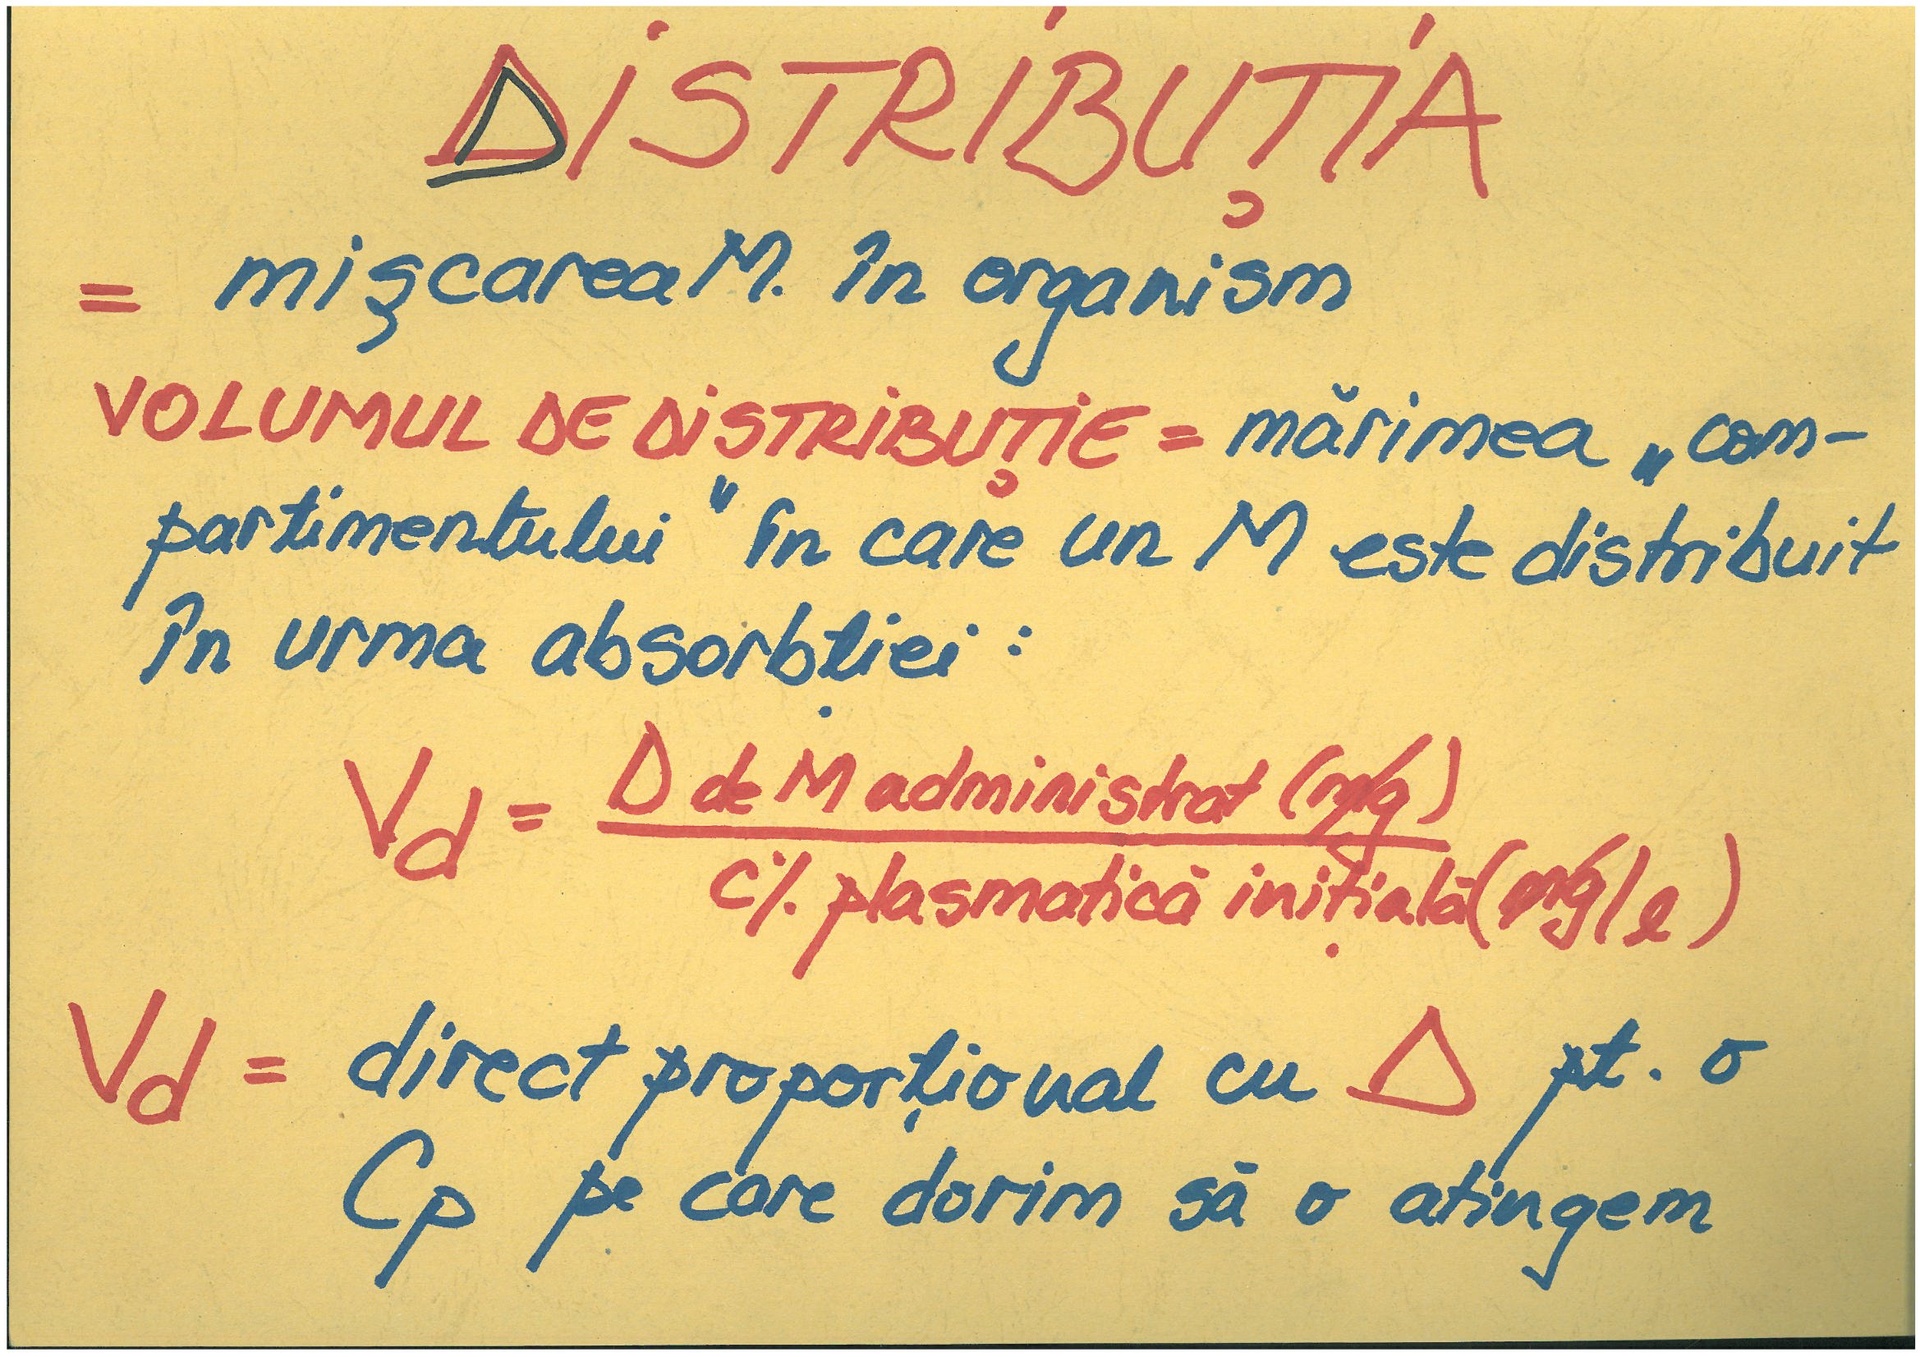 DISTRIBUȚIA
= mișcarea M. în organism
VOLUMUL DE DISTRIBUȚIE = mărimea „com-
partimentului" în care un M este distribuit
în urma absorbției :
Vd = D de M administrat (mg)
c% plasmatică inițială (mg/l)
Vd = direct proporțional cu D pt. o
Cp pe care dorim să o atingem